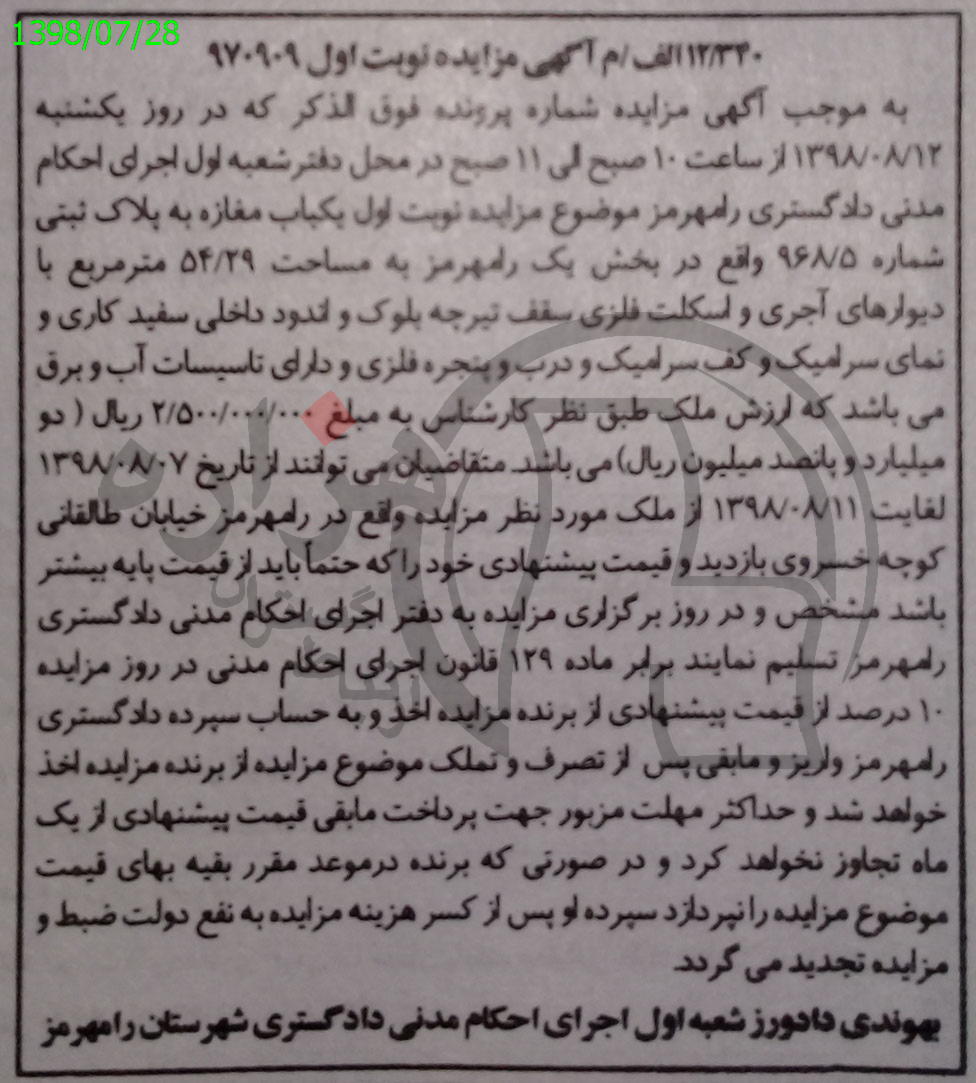 1398/07/28
۱۲/۳۴۰الف/م آگهی مزایده نوبت اول ۹۷۰۹۰۹
به موجب آگهی مزایده شماره پرونده فوق الذکر که در روز یکشنبه
۱۳۹۸/۰۸/۱۲ از ساعت ۱۰ صبح الی ۱۱ صبح در محل دفتر شعبه اول اجرای احکام
مدنی دادگستری رامهرمز موضوع مزایده نوبت اول یکباب مغازه به پلاک ثبتی
شماره ۹۶۸/۵ واقع در بخش یک رامهرمز به مساحت ۵۴/۲۹ مترمربع با
دیوارهای آجری و اسکلت فلزی سقف تیرچه بلوک و اندود داخلی سفید کاری و
نمای سرامیک و کف سرامیک و درب و پنجره فلزی و دارای تاسیسات آب و برق
می باشد که ارزش ملک طبق نظر کارشناس به مبلغ ۲/۵۰۰/۰۰۰/۰۰۰ ریال ( دو
میلیارد و پانصد میلیون ریال) می باشد. متقاضیان می توانند از تاریخ ۱۳۹۸/۰۸/۰۷
لغایت ۱۳۹۸/۰۸/۱۱ از ملک مورد نظر مزایده واقع در رامهرمز خیابان طالقانی
کوچه خسروی بازدید و قیمت پیشنهادی خود را که حتماً باید از قیمت پایه بیشتر
باشد مشخص و در روز برگزاری مزایده به دفتر اجرای احکام مدنی دادگستری
رامهرمز تسلیم نمایند برابر ماده ۱۲۹ قانون اجرای احکام مدنی در روز مزایده
۱۰ درصد از قیمت پیشنهادی از برنده مزایده اخذ و به حساب سپرده دادگستری
رامهرمز واریز و مابقی پس از تصرف و تملک موضوع مزایده از برنده مزایده اخذ
خواهد شد و حداکثر مهلت مزبور جهت پرداخت مابقی قیمت پیشنهادی از یک
ماه تجاوز نخواهد کرد و در صورتی که برنده درموعد مقرر بقیه بهای قیمت
موضوع مزایده را نپردازد سپرده او پس از کسر هزینه مزایده به نفع دولت ضبط و
مزایده تجدید می گردد.
بهوندی دادورز شعبه اول اجرای احکام مدنی دادگستری شهرستان رامهرمز
هزاره